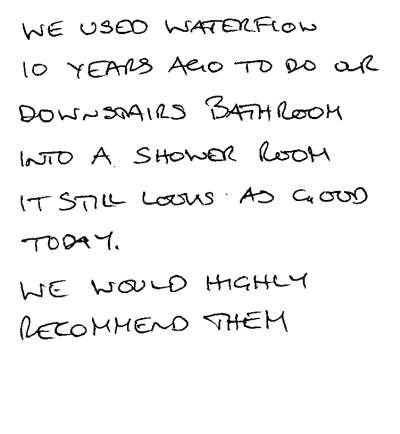 WE USED WATERFLOW
10 YEARS AGO TO DO OUR
DOWNSTAIRS BATHROOM
INTO A SHOWER ROOM
IT STILL LOOKS AS GOOD
TODAY.
WE WOULD HIGHLY
RECOMMEND THEM